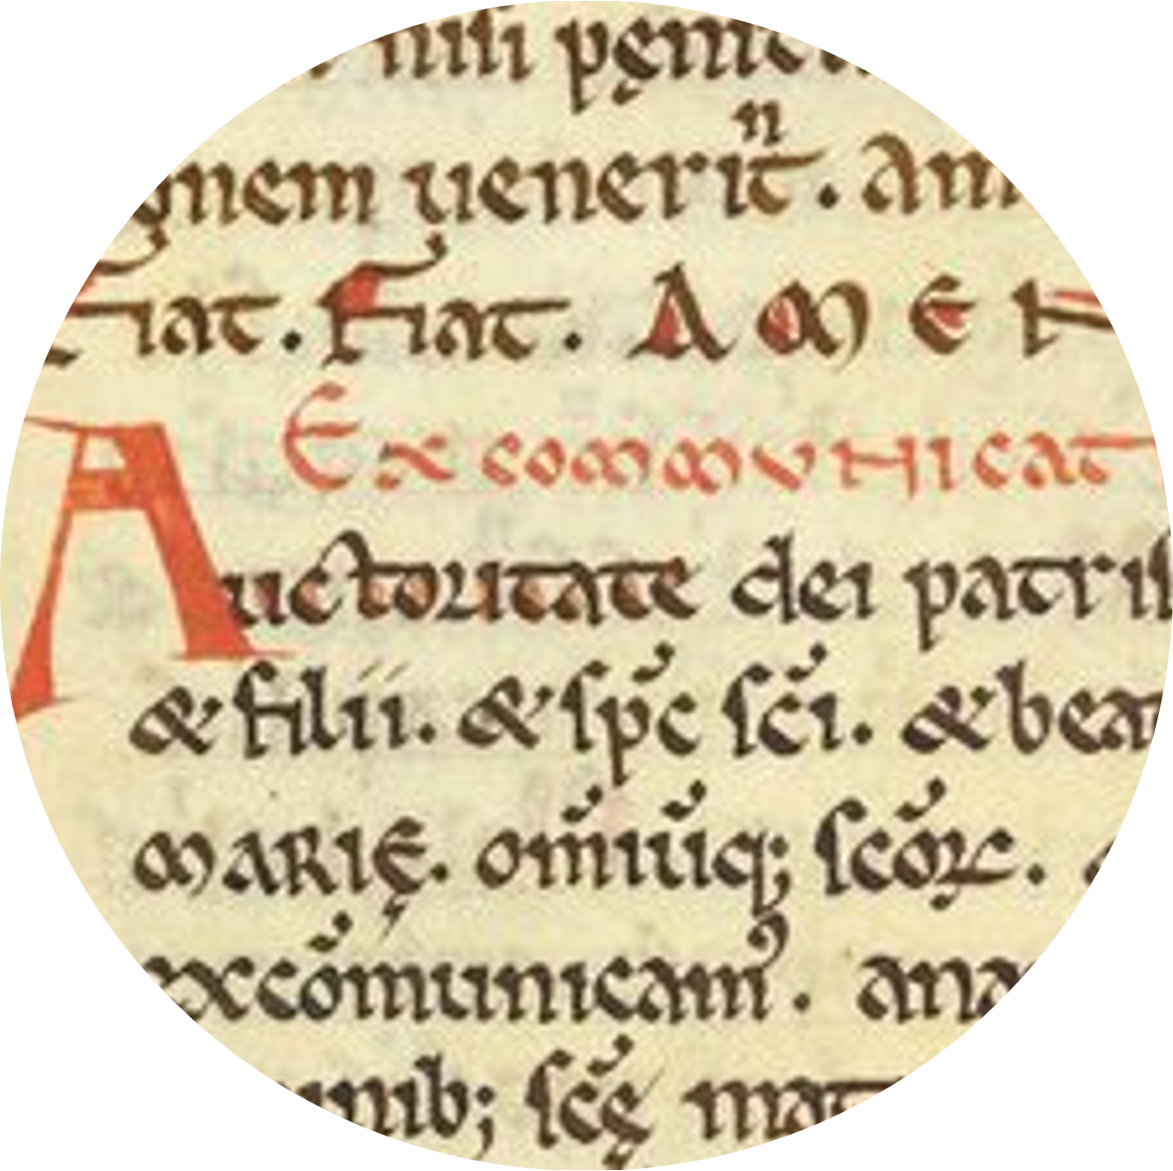 nisi pęnit
gnem uenerit n. am
Fiat. Fiat. AMEN
Excommunicat
Auctoritate dei patris
& filii. & sp̄c sc̄i. & beat
MARIĘ. om̄iūq; sc̄oꝝ.
excōmunicam᾽. ana
minib; sc̄ę mat